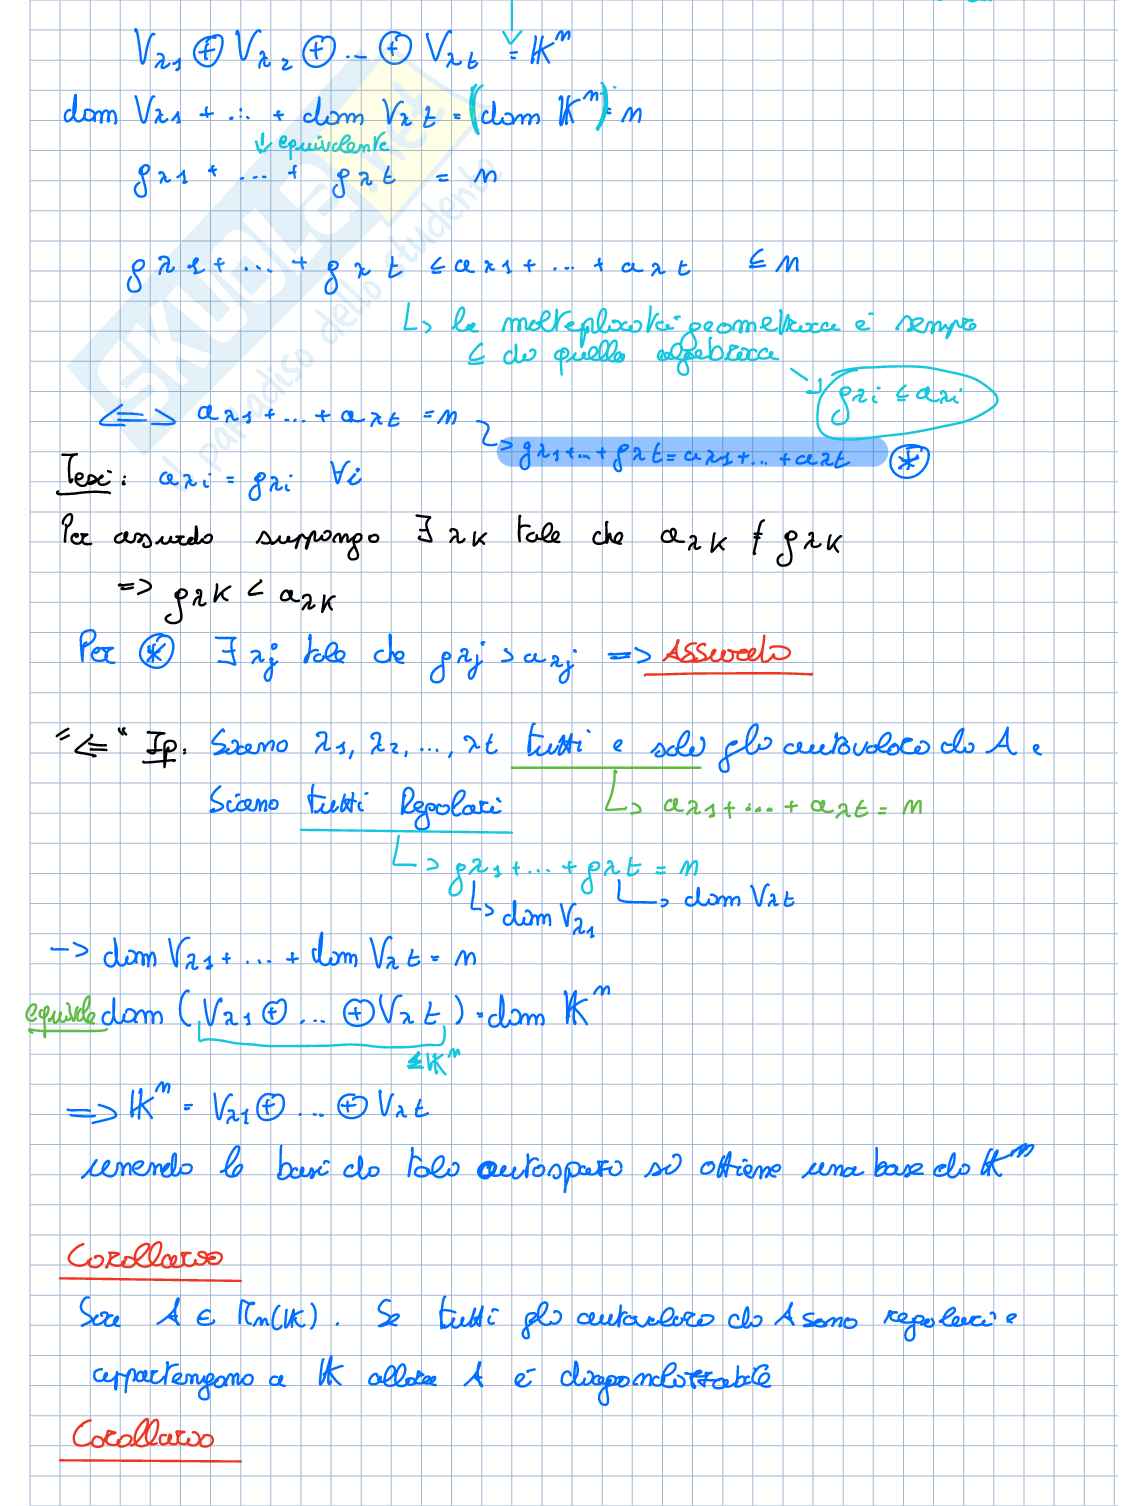 Vλ1 ⊕ Vλ2 ⊕ ... ⊕ Vλt = 𝕂ⁿ
dim Vλ1 + ... + dim Vλt = (dim 𝕂ⁿ) = n
↓ equivalente
gλ1 + ... + gλt = n
gλ1 + ... + gλt ≤ aλ1 + ... + aλt ≤ n
↳ la molteplicità geometrica è sempre
≤ di quella algebrica
→ gλi ≤ aλi
⟺ aλ1 + ... + aλt = n
→ gλ1 + ... + gλt = aλ1 + ... + aλt ⊛
Tesi: aλi = gλi ∀i
Per assurdo suppongo ∃ λk tale che aλk ≠ gλk
=> gλk < aλk
Per ⊛ ∃ λj tale che gλj > aλj => Assurdo
"<=" Ip. Siano λ1, λ2, ..., λt tutti e soli gli autovalori di A e
siano tutti Regolari
↳ aλ1 + ... + aλt = n
↳ gλ1 + ... + gλt = n
↳ dim Vλ1
↳ dim Vλt
-> dim Vλ1 + ... + dim Vλt = n
equivale dim (Vλ1 ⊕ ... ⊕ Vλt) = dim 𝕂ⁿ
≤ 𝕂ⁿ
=> 𝕂ⁿ = Vλ1 ⊕ ... ⊕ Vλt
unendo le basi di tali autospazi si ottiene una base di 𝕂ⁿ
Corollario
Sia A ∈ Mn(𝕂). Se tutti gli autovalori di A sono regolari e
appartengono a 𝕂 allora A è diagonalizzabile
Corollario
SKUOLA.net
il paradiso dello studente